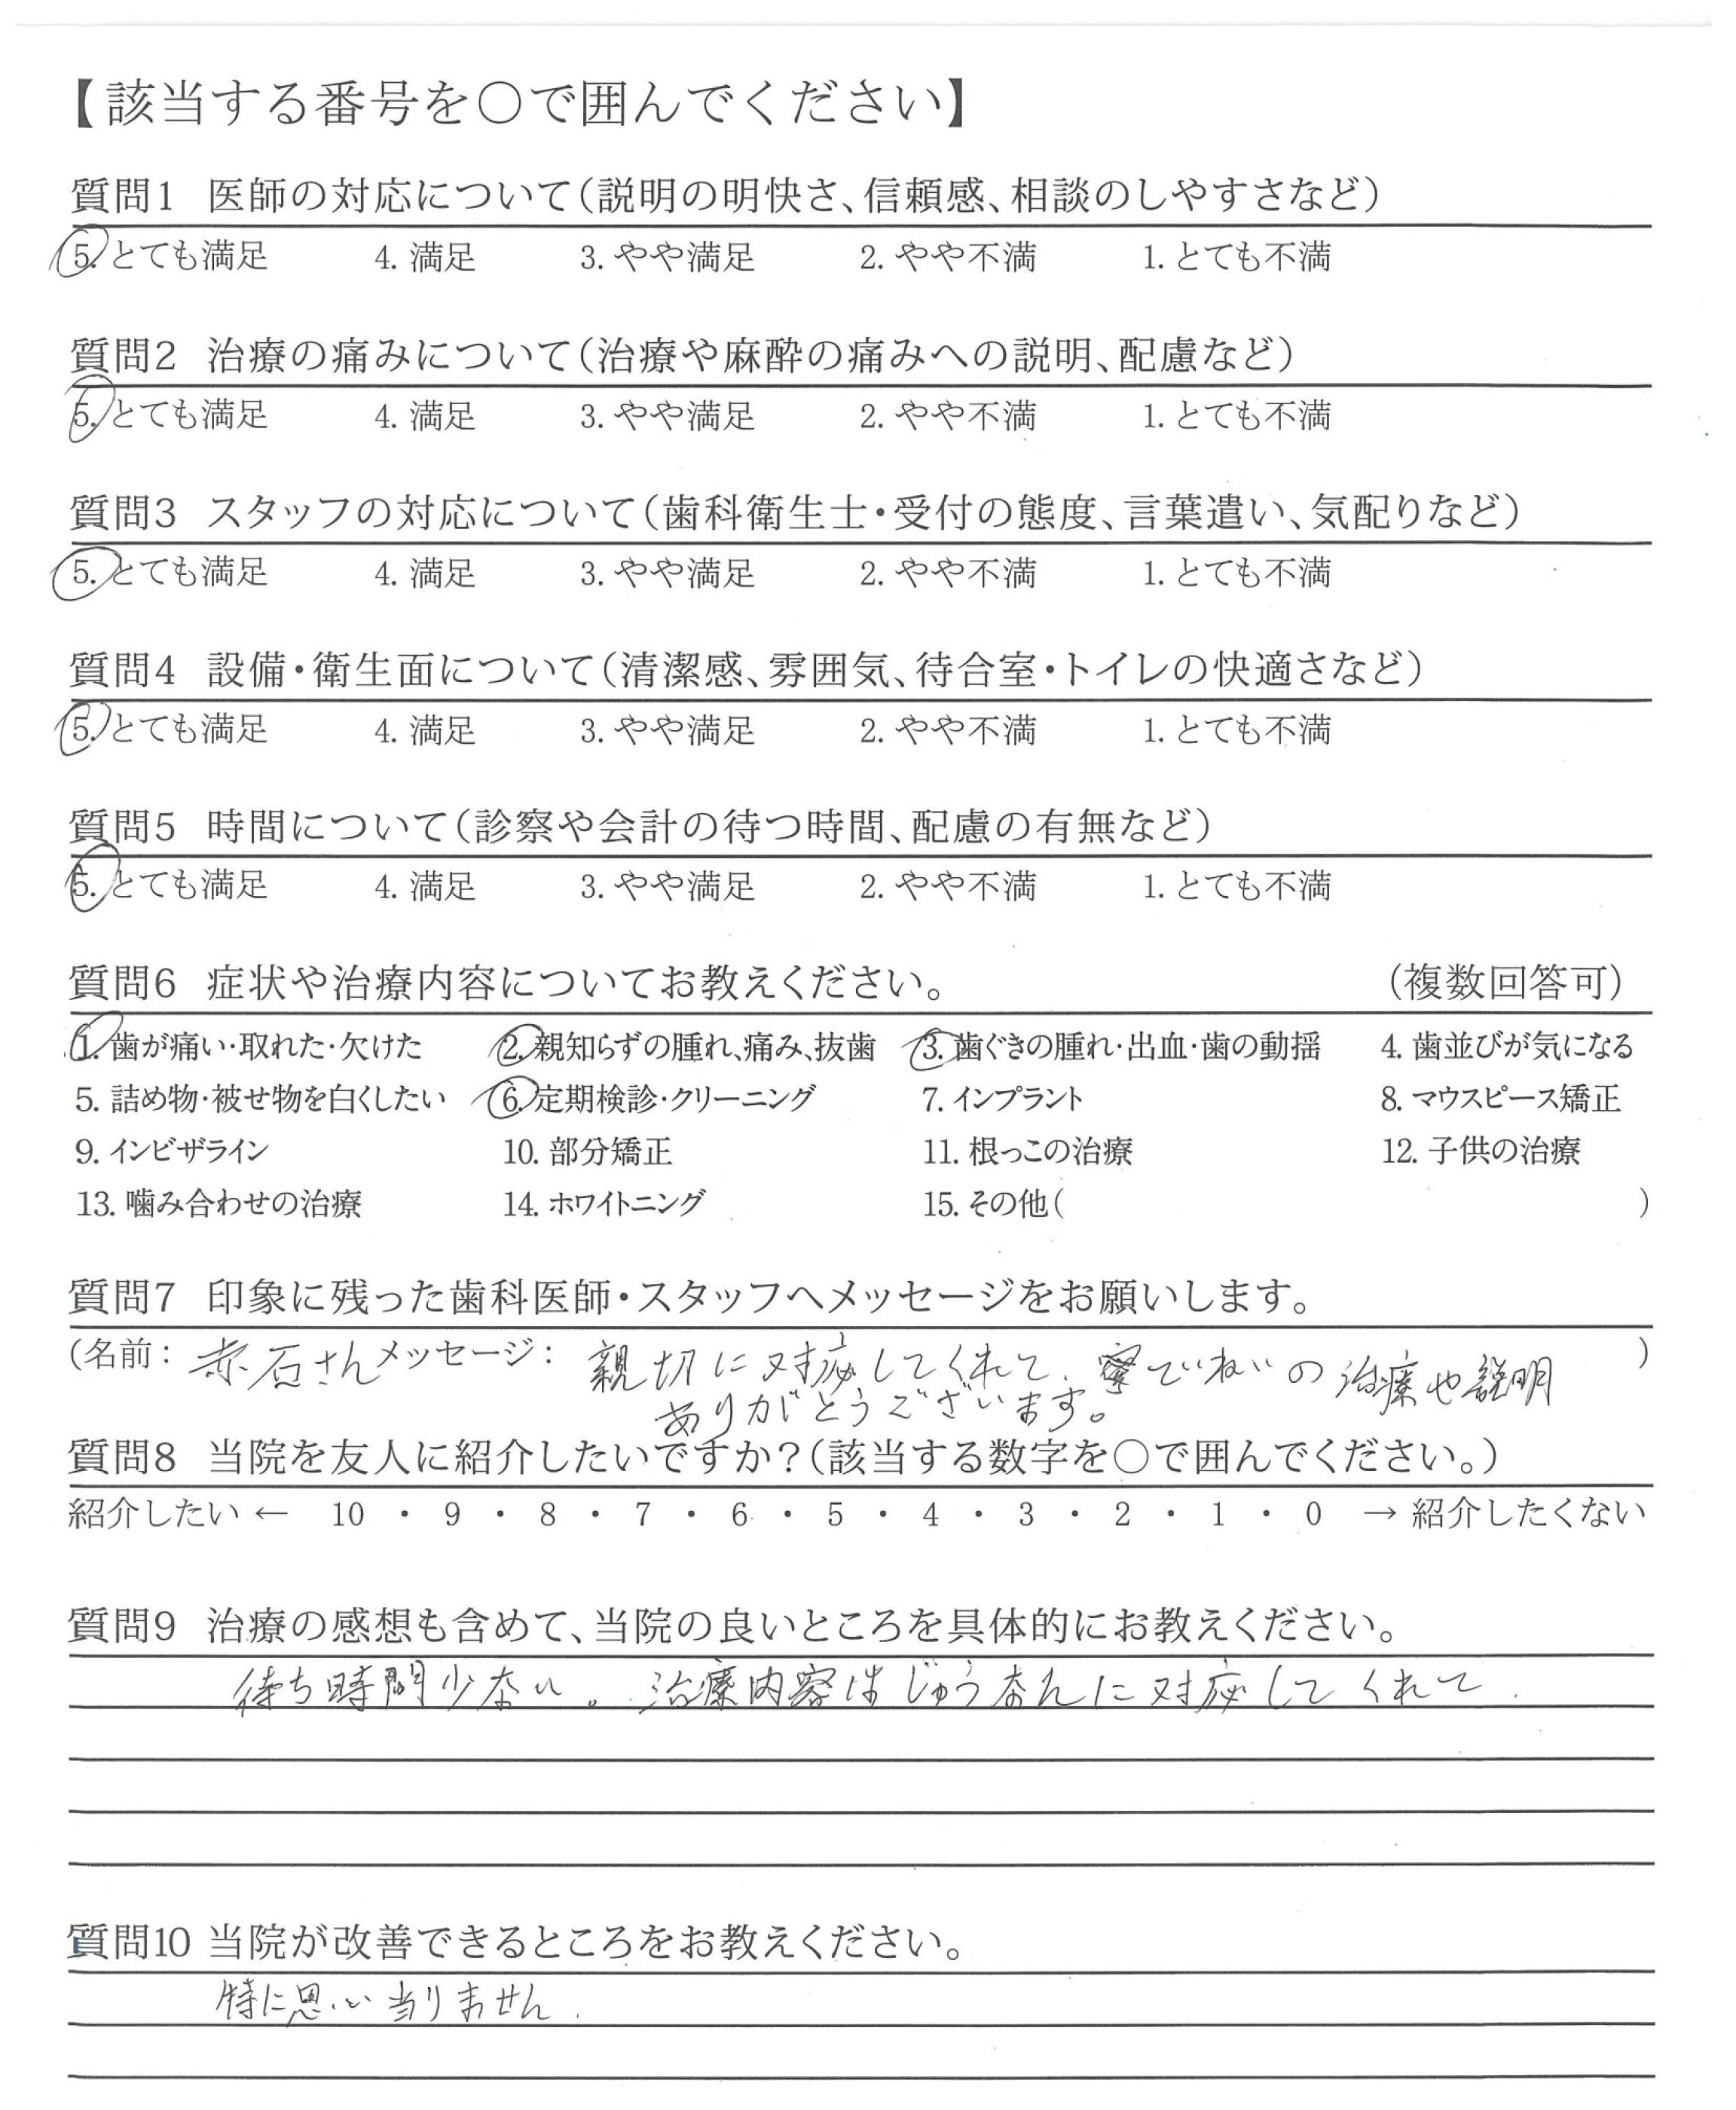 【該当する番号を〇で囲んでください】
質問1 医師の対応について（説明の明快さ、信頼感、相談のしやすさなど）
5. とても満足 4. 満足 3. やや満足 2. やや不満 1. とても不満
質問2 治療の痛みについて（治療や麻酔の痛みへの説明、配慮など）
5. とても満足 4. 満足 3. やや満足 2. やや不満 1. とても不満
質問3 スタッフの対応について（歯科衛生士・受付の態度、言葉遣い、気配りなど）
5. とても満足 4. 満足 3. やや満足 2. やや不満 1. とても不満
質問4 設備・衛生面について（清潔感、雰囲気、待合室・トイレの快適さなど）
5. とても満足 4. 満足 3. やや満足 2. やや不満 1. とても不満
質問5 時間について（診察や会計の待つ時間、配慮の有無など）
5. とても満足 4. 満足 3. やや満足 2. やや不満 1. とても不満
質問6 症状や治療内容についてお教えください。 （複数回答可）
1. 歯が痛い・取れた・欠けた 2. 親知らずの腫れ、痛み、抜歯 3. 歯ぐきの腫れ・出血・歯の動揺 4. 歯並びが気になる
5. 詰め物・被せ物を白くしたい 6. 定期検診・クリーニング 7. インプラント 8. マウスピース矯正
9. インビザライン 10. 部分矯正 11. 根っこの治療 12. 子供の治療
13. 噛み合わせの治療 14. ホワイトニング 15. その他（ ）
質問7 印象に残った歯科医師・スタッフへメッセージをお願いします。
（名前： 赤石さん メッセージ： 親切に対応してくれて、ていねいの治療や説明 ）
ありがとうございます。
質問8 当院を友人に紹介したいですか？（該当する数字を〇で囲んでください。）
紹介したい ← 10 ・ 9 ・ 8 ・ 7 ・ 6 ・ 5 ・ 4 ・ 3 ・ 2 ・ 1 ・ 0 → 紹介したくない
質問9 治療の感想も含めて、当院の良いところを具体的にお教えください。
待ち時間少ない。治療内容はじゅうなんに対応してくれて.
質問10 当院が改善できるところをお教えください。
特に思い当りません.